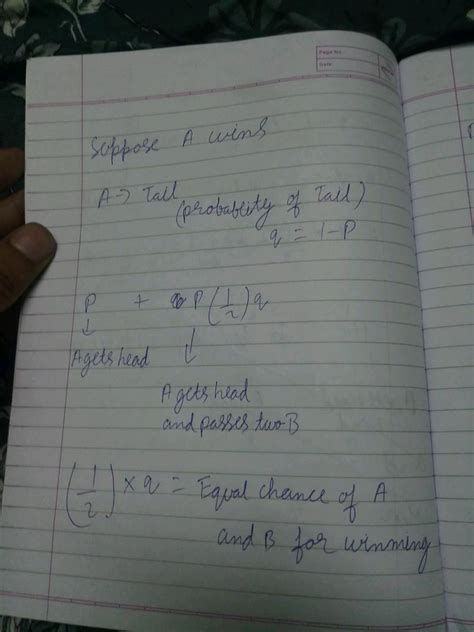 Page No.
Date
Suppose A wins
A → Tall
(probablity of Tall)
q = 1-P
P + P(1/2)q
↓ ↓
A gets head
A gets head
and passes two B
(1/2) × q = Equal chance of A
and B for winming